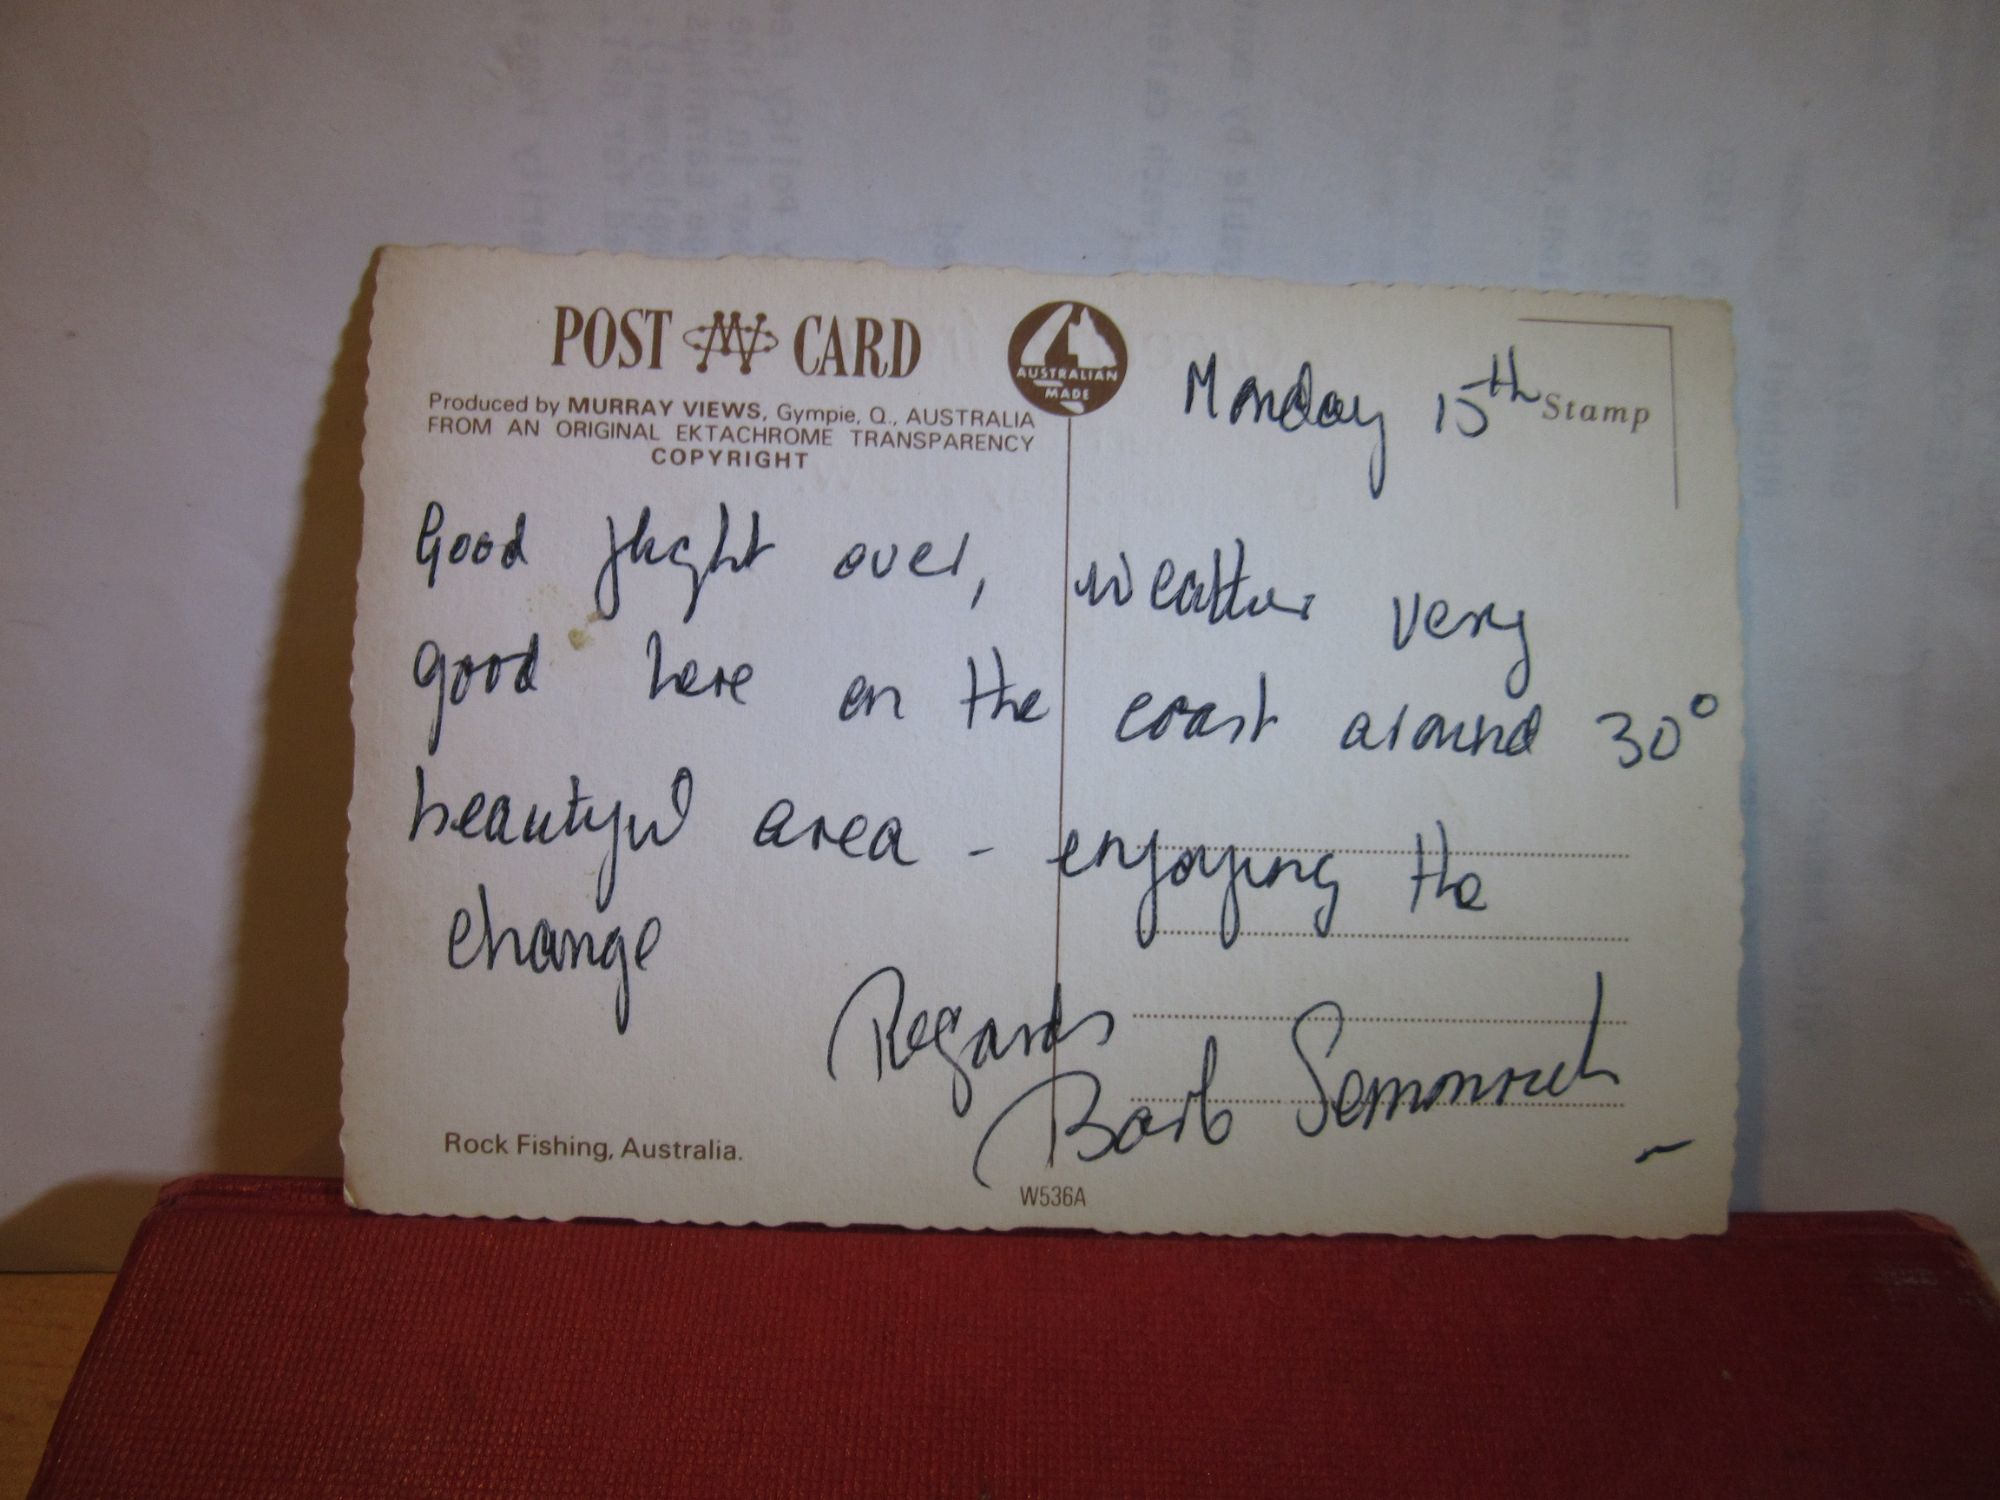 POST CARD
Produced by MURRAY VIEWS, Gympie, Q., AUSTRALIA
FROM AN ORIGINAL EKTACHROME TRANSPARENCY
COPYRIGHT
AUSTRALIAN
MADE
Monday 15th
Stamp
Good flight over, weather very
good here on the coast around 30°
beautiful area - enjoying the
change
Regards
Barb
Rock Fishing, Australia.
W536A